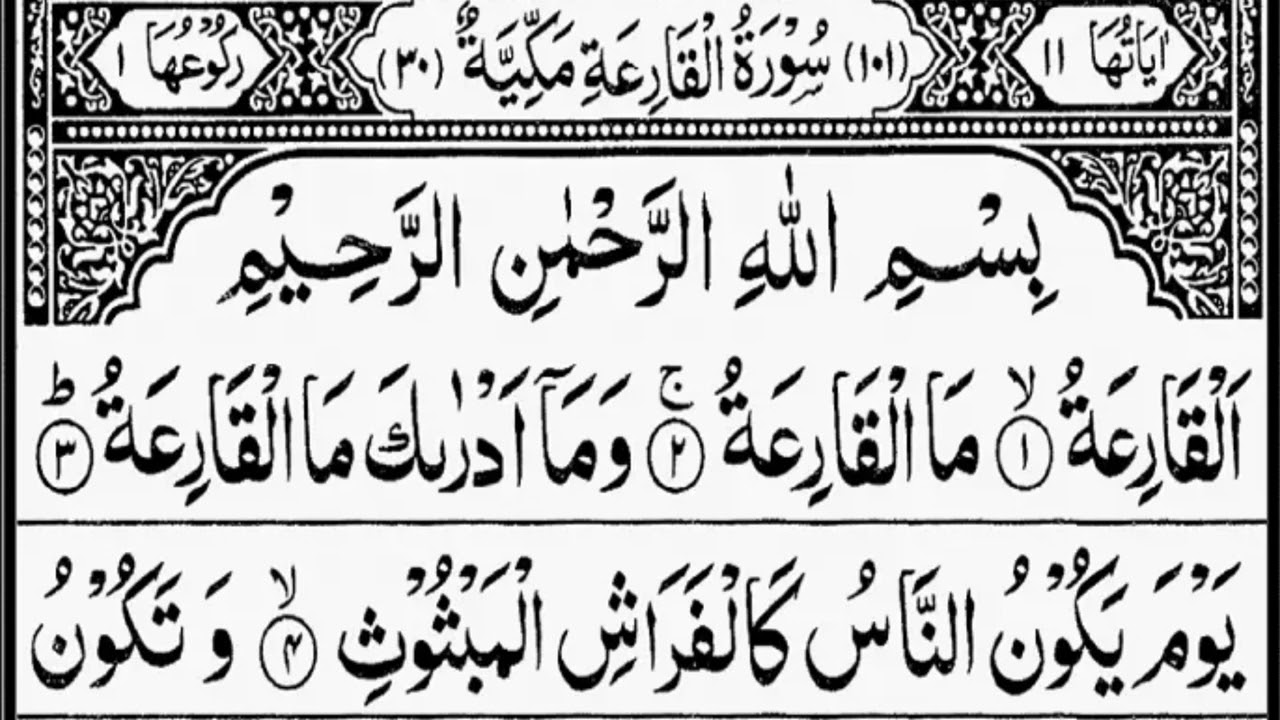 اٰيَاتُهَا ١١ (١٠١) سُوْرَةُ الْقَارِعَةِ مَكِّيَّةٌ (٣٠) رُكُوْعُهَا ١
بِسْمِ اللّٰهِ الرَّحْمٰنِ الرَّحِيْمِ
اَلْقَارِعَةُ ۙ﴿١﴾ مَا الْقَارِعَةُ ۚ﴿٢﴾ وَمَآ اَدْرٰىكَ مَا الْقَارِعَةُ ؕ﴿٣﴾
يَوْمَ يَكُوْنُ النَّاسُ كَالْفَرَاشِ الْمَبْثُوْثِ ۙ﴿۴﴾ وَ تَكُوْنُ